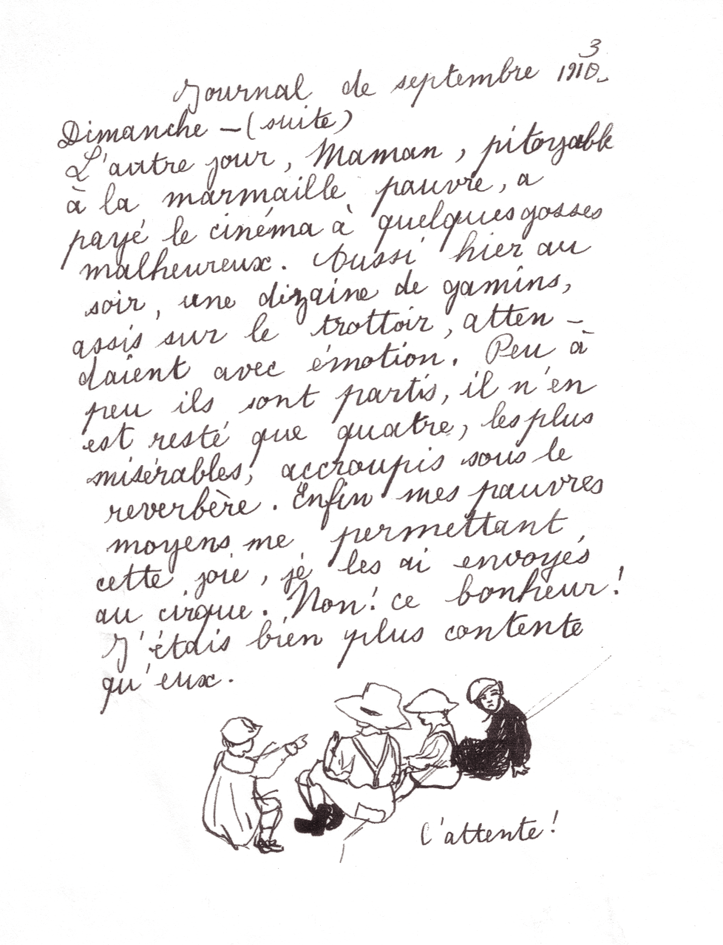 3
Journal de septembre 1910_
Dimanche — (suite)
L'autre jour, Maman, pitoyable
à la marmaille pauvre, a
payé le cinéma à quelques gosses
malheureux. Aussi hier au
soir, une dizaine de gamins,
assis sur le trottoir, atten-
daient avec émotion. Peu à
peu ils sont partis, il n'en
est resté que quatre, les plus
misérables, accroupis sous le
reverbère. Enfin mes pauvres
moyens me permettant
cette joie, je les ai envoyés
au cirque. Non! ce bonheur!
J'étais bien plus contente
qu'eux.
L'attente!